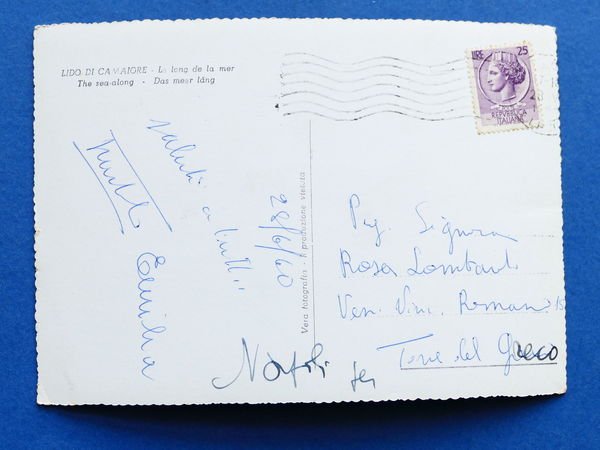 LIDO DI CAMAIORE - Le long de la mer
The sea-along - Das meer läng
LIRE 25
REPVBBLICA
ITALIANA
Saluti a tutti
Emilia
28/6/60
Vera fotografia - Riproduzione vietata
Signora
Rosa Lombardi
Ven. Vinc. Romano 15
Torre del Greco
Napoli
per